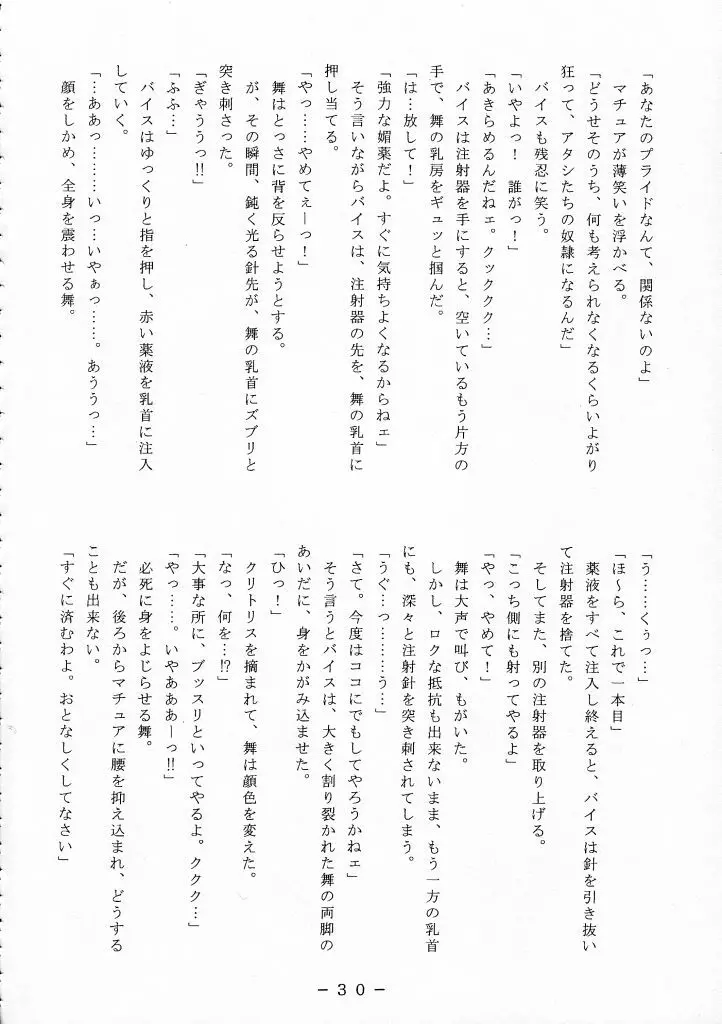 「あなたのプライドなんて、関係ないのよ」
マチュアが薄笑いを浮かべる。
「どうせそのうち、何も考えられなくなるくらいよがり
狂って、アタシたちの奴隷になるんだ」
バイスも残忍に笑う。
「いやよっ！　誰がっ！」
「あきらめるんだねェ。クッククク…」
バイスは注射器を手にすると、空いているもう片方の
手で、舞の乳房をギュッと掴んだ。
「は…放して！」
「強力な媚薬だよ。すぐに気持ちよくなるからねェ」
そう言いながらバイスは、注射器の先を、舞の乳首に
押し当てる。
「やっ……やめてぇーっ！」
舞はとっさに背を反らせようとする。
が、その瞬間、鈍く光る針先が、舞の乳首にズブリと
突き刺さった。
「ぎゃううっ!!」
「ふふ…」
バイスはゆっくりと指を押し、赤い薬液を乳首に注入
していく。
「…ああっ………いっ…いやぁっ……。あううっ…」
顔をしかめ、全身を震わせる舞。
「う……くぅっ…」
「ほ～ら、これで一本目」
薬液をすべて注入し終えると、バイスは針を引き抜い
て注射器を捨てた。
そしてまた、別の注射器を取り上げる。
「こっち側にも射ってやるよ」
「やっ、やめて！」
舞は大声で叫び、もがいた。
しかし、ロクな抵抗も出来ないまま、もう一方の乳首
にも、深々と注射針を突き刺されてしまう。
「うぐ…っ………う…」
「さて。今度はココにでもしてやろうかねェ」
そう言うとバイスは、大きく割り裂かれた舞の両脚の
あいだに、身をかがみ込ませた。
「ひっ！」
クリトリスを摘まれて、舞は顔色を変えた。
「なっ、何を…!?」
「大事な所に、ブッスリといってやるよ。ククク…」
「やっ……。いやあああーっ!!」
必死に身をよじらせる舞。
だが、後ろからマチュアに腰を抑え込まれ、どうする
ことも出来ない。
「すぐに済むわよ。おとなしくしてなさい」
－３０－